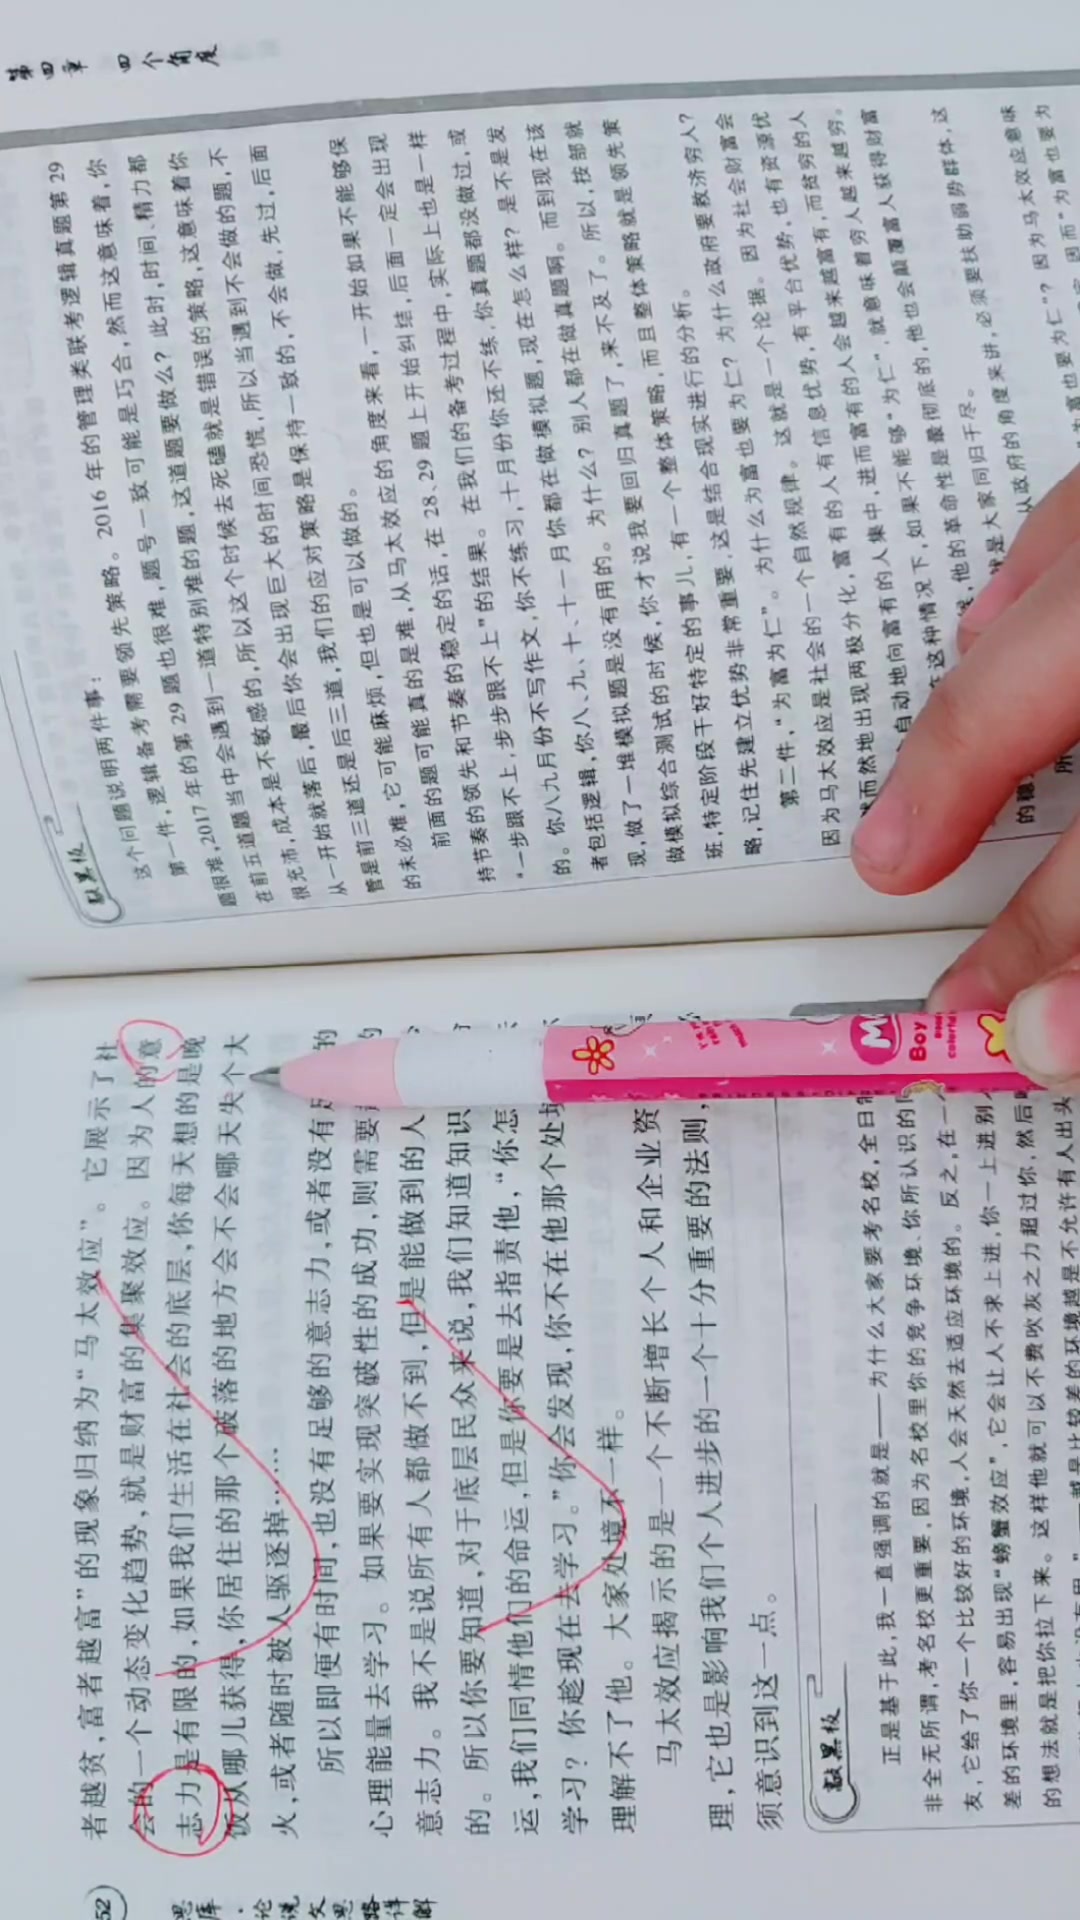 52
思库·论说文思路详解
者越贫,富者越富”的现象归纳为“马太效应”。它展示了社
会的一个动态变化趋势,就是财富的集聚效应。因为人的意
志力是有限的,如果我们生活在社会的底层,你每天想的是晚
饭从哪儿获得,你居住的那个破落的地方会不会哪天失个大
火,或者随时被人驱逐掉……
所以即便有时间,也没有足够的意志力,或者没有足 的
心理能量去学习。如果要实现突破性的成功,则需要 的
意志力。我不是说所有人都做不到,但是能做到的人
的。所以你要知道,对于底层民众来说,我们知道知识
运,我们同情他们的命运,但是你要是去指责他,“你怎
学习?你趁现在去学习。”你会发现,你不在他那个处境
理解不了他。大家处境不一样。
马太效应揭示的是一个不断增长个人和企业资
理,它也是影响我们个人进步的一个十分重要的法则,
须意识到这一点。
敲黑板
正是基于此,我一直强调的就是——为什么大家要考名校,全日
非全无所谓,考名校更重要,因为名校里你的竞争环境、你所认识的
友,它给了你一个比较好的环境,人会天然去适应环境的。反之,在一
差的环境里,容易出现“螃蟹效应”,它会让人不求上进,你一上进别
的想法就是把你拉下来。这样他就可以不费吹灰之力超过你,然后
越是比较差的环境越是不允许有人出头
第四章 四个角度
敲黑板
这个问题说明两件事:
第一件,逻辑备考需要领先策略。2016年的管理类联考逻辑真题第29
题很难,2017年的第29题也很难,题号一致可能是巧合,然而这意味着,你
在前五道题当中会遇到一道特别难的题,这道题要做么?此时,时间、精力都
很充沛,成本是不敏感的,所以这个时候去死磕就是错误的策略,这意味着你
从一开始就落后,最后你会出现巨大的时间恐慌,所以当遇到不会做的题,不
管是前三道还是后三道,我们的应对策略是保持一致的,不会做,先过,后面
的未必难,它可能麻烦,但也是可以做的。
前面的题可能真的是难,从马太效应的角度来看,一开始如果不能够保
持节奏的领先和节奏的稳定的话,在28、29题上开始纠结,后面一定会出现
“一步跟不上,步步跟不上”的结果。在我们的备考过程中,实际上也是一样
的。你八九月份不写作文,你不练习,十月份你还不练,你真题都没做过,或
者包括逻辑,你八、九、十、十一月你都在做模拟题,现在怎么样?是不是发
现,做了一堆模拟题是没有用的。为什么?别人都在做真题啊。而到现在该
做模拟综合测试的时候,你才说我要回归真题了,来不及了。所以,按部就
班,特定阶段干好特定的事儿,有一个整体策略,而且整体策略就是领先策
略,记住先建立优势非常重要,这是结合现实进行的分析。
第二件,“为富为仁”。为什么为富也要为仁?为什么政府要救济穷人?
因为马太效应是社会的一个自然规律。这就是一个论据。因为社会财富会
自动地向富有的人集中,进而富有的人有信息优势,有平台优势,也有资源优
然而然地出现两极分化,富有的人会越来越富有,而贫穷的人
在这种情况下,如果不能够“为仁”,就意味着穷人越来越穷。
候,他的革命性是最彻底的,他也会颠覆富人获得财富
就是大家同归于尽。
从政府的角度来讲,必须要扶助弱势群体,这
的稳
为富也要为仁”?因为马太效应意味
所
因而“为富也要为